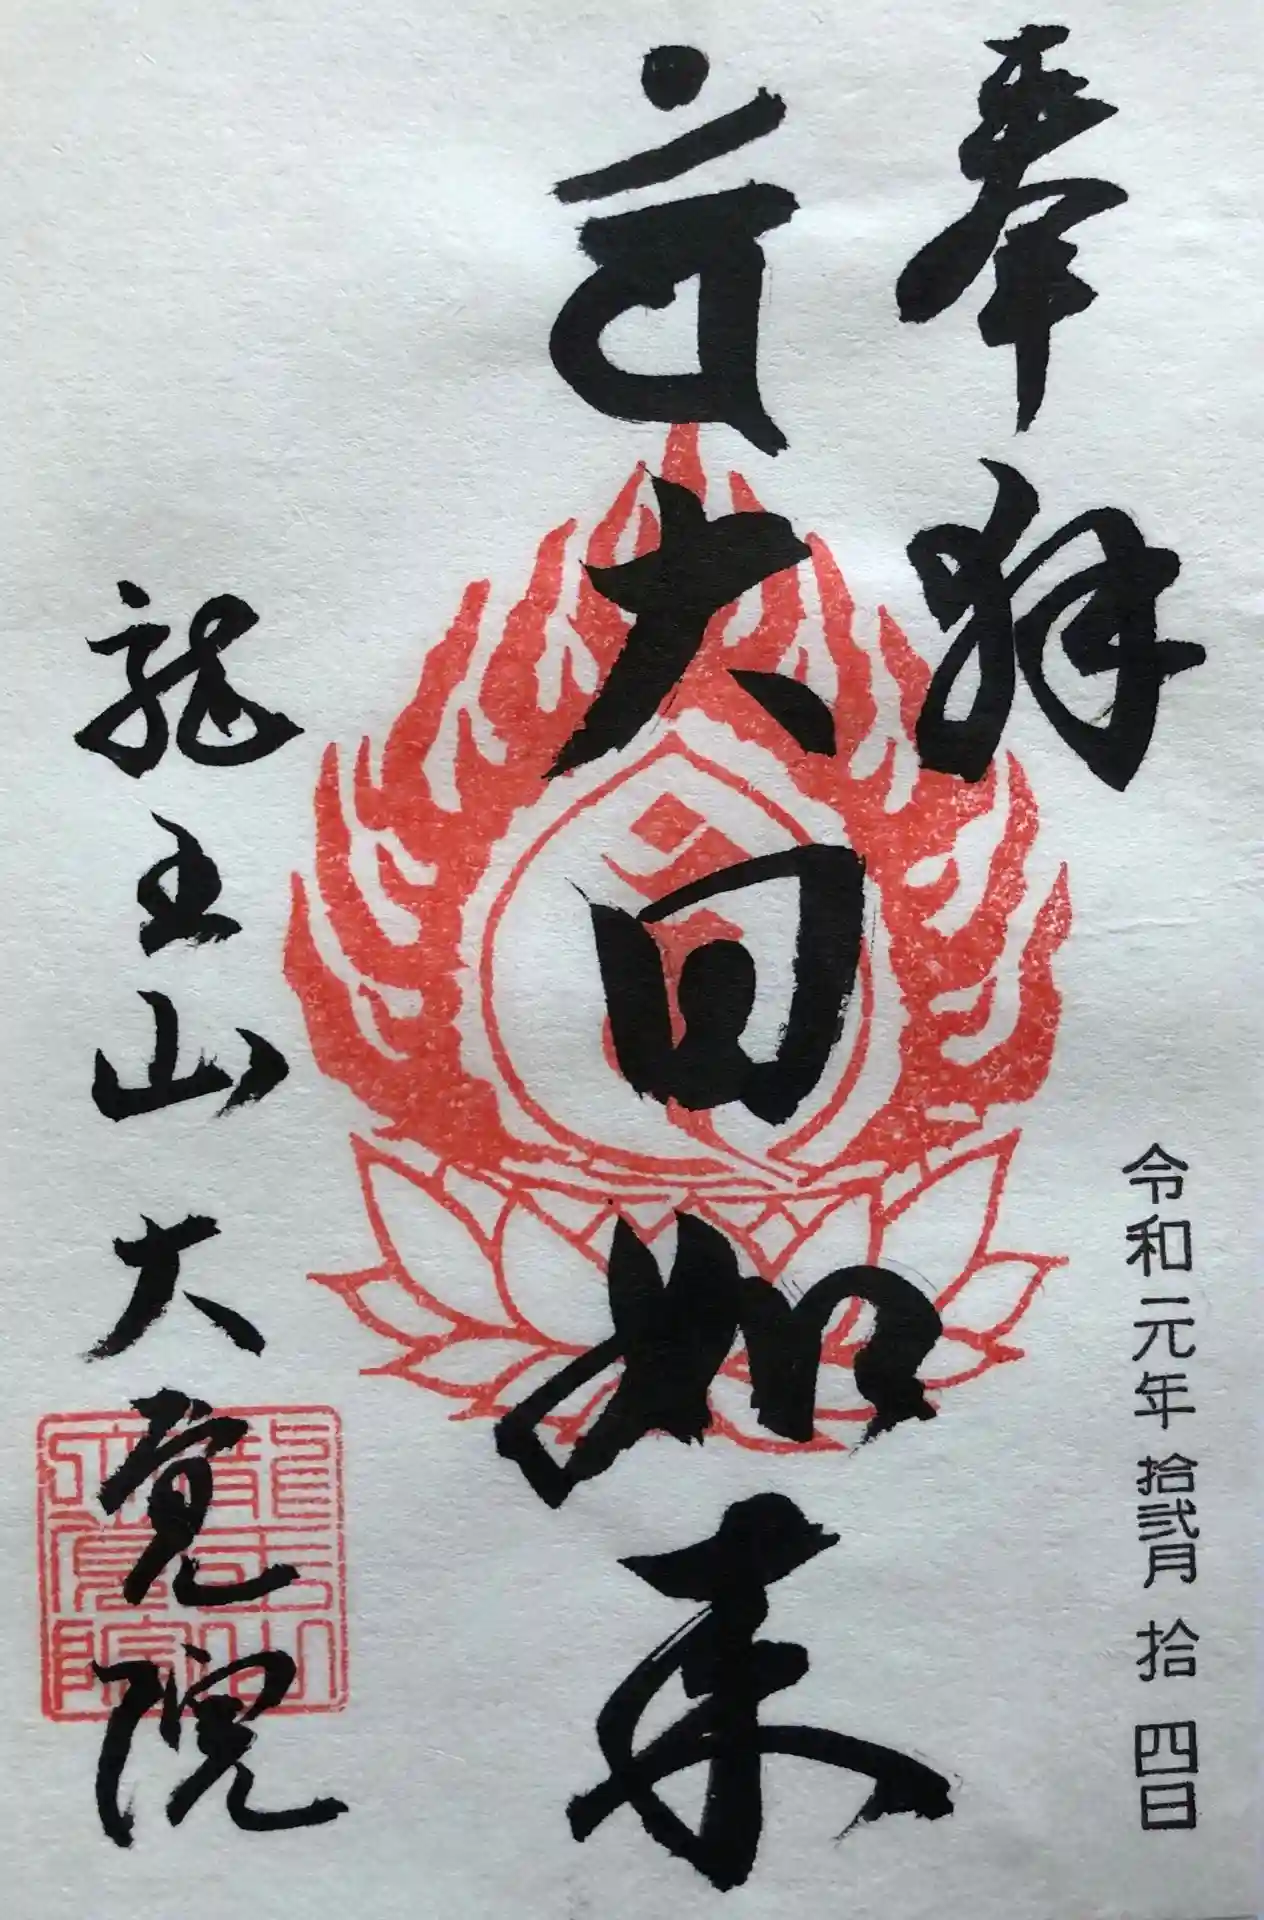 奉拝
令和元年拾弐月拾四日
大日如来
龍王山大覚院
龍王山
大覚院